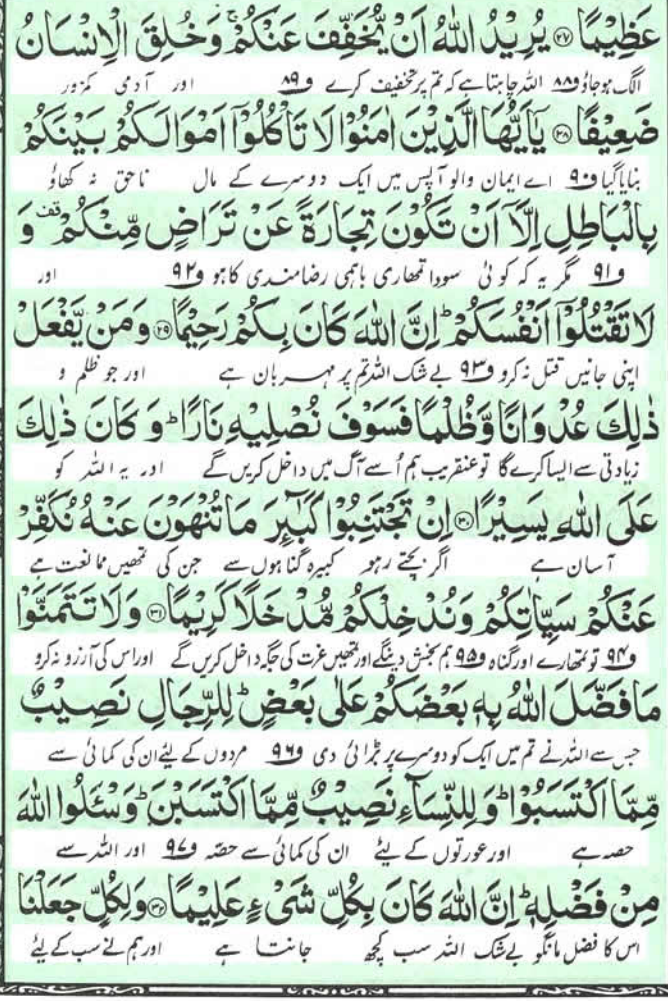 عَظِيْمًا ۲۷ يُرِيْدُ اللّٰهُ اَنْ يُّخَفِّفَ عَنْكُمْ ۚ وَخُلِقَ الْاِنْسَانُ
الگ ہوجاؤ و۸۸ اللہ چاہتا ہے کہ تم پر تخفیف کرے و۸۹ اور آدمی کمزور
ضَعِيْفًا ۲۸ يٰۤاَيُّهَا الَّذِيْنَ اٰمَنُوْا لَا تَاْكُلُوْۤا اَمْوَالَكُمْ بَيْنَكُمْ
بنایا گیا و۹۰ اے ایمان والو آپس میں ایک دوسرے کے مال ناحق نہ کھاؤ
بِالْبَاطِلِ اِلَّاۤ اَنْ تَكُوْنَ تِجَارَةً عَنْ تَرَاضٍ مِّنْكُمْ قف وَ
و۹۱ مگر یہ کہ کوئی سودا تمھاری باہمی رضامندی کا ہو و۹۲ اور
لَا تَقْتُلُوْۤا اَنْفُسَكُمْ ؕ اِنَّ اللّٰهَ كَانَ بِكُمْ رَحِيْمًا ۲۹ وَمَنْ يَّفْعَلْ
اپنی جانیں قتل نہ کرو و۹۳ بے شک اللہ تم پر مہربان ہے اور جو ظلم و
ذٰلِكَ عُدْوَانًا وَّظُلْمًا فَسَوْفَ نُصْلِيْهِ نَارًا ؕ وَكَانَ ذٰلِكَ
زیادتی سے ایسا کرے گا تو عنقریب ہم اُسے آگ میں داخل کریں گے اور یہ اللہ کو
عَلَى اللّٰهِ يَسِيْرًا ۳۰ اِنْ تَجْتَنِبُوْا كَبَآئِرَ مَا تُنْهَوْنَ عَنْهُ نُكَفِّرْ
آسان ہے اگر بچتے رہو کبیرہ گناہوں سے جن کی تمھیں ممانعت ہے
عَنْكُمْ سَيِّاٰتِكُمْ وَنُدْخِلْكُمْ مُّدْخَلًا كَرِيْمًا ۳۱ وَلَا تَتَمَنَّوْا
و۹۴ تو تمھارے اور گناہ و۹۵ ہم بخش دینگے اور تمھیں عزت کی جگہ داخل کریں گے اور اس کی آرزو نہ کرو
مَا فَضَّلَ اللّٰهُ بِهٖ بَعْضَكُمْ عَلٰى بَعْضٍ ؕ لِلرِّجَالِ نَصِيْبٌ
جس سے اللہ نے تم میں ایک کو دوسرے پر بڑائی دی و۹۶ مردوں کے لیئے ان کی کمائی سے
مِّمَّا اكْتَسَبُوْا ؕ وَلِلنِّسَآءِ نَصِيْبٌ مِّمَّا اكْتَسَبْنَ ؕ وَسْـَٔلُوا اللّٰهَ
حصہ ہے اور عورتوں کے لیئے ان کی کمائی سے حصّہ و۹۷ اور اللہ سے
مِنْ فَضْلِهٖ ؕ اِنَّ اللّٰهَ كَانَ بِكُلِّ شَیْءٍ عَلِيْمًا ۳۲ وَلِكُلٍّ جَعَلْنَا
اس کا فضل مانگو بے شک اللہ سب کچھ جانتا ہے اور ہم نے سب کے لیئے